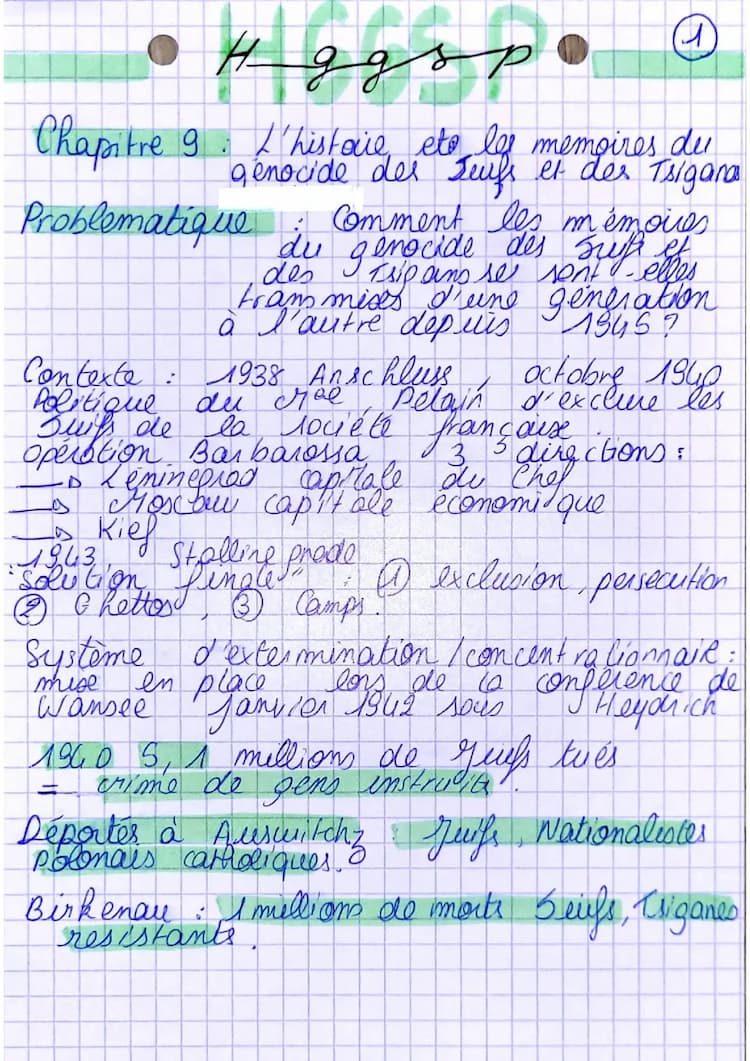 HGGSP
Hggsp
1
Chapitre 9 : L'histoire eto les memoires du
génocide des Juifs et des Tsiganes
Problématique : Comment les mémoires
du génocide des Juifs et
des Tsigans se sont-elles
transmises d'une génération
à l'autre depuis 1945 ?
Contexte : 1938 Anschluss, octobre 1940
Politique du Mal Pétain d'exclure les
Juifs de la société française.
opération Barbarossa, 3 directions :
→ Léninegrad capitale du Chef
→ Moscou capitale économique
→ Kief
1943 Stallinegrade
"Solution finale" : ① exclusion, persécution
② Ghettos, ③ Camps.
Système d'extermination / concentrationnaire :
mise en place lors de la conférence de
Wansee janvier 1942 sous Heydrich
1940 5,1 millions de Juifs tués
= crime de gens instruits.
Déportés à Auswitchz : Juifs, Nationalistes
polonais catholiques.
Birkenau : 1 millions de morts Juifs, Tsiganes
resistants.